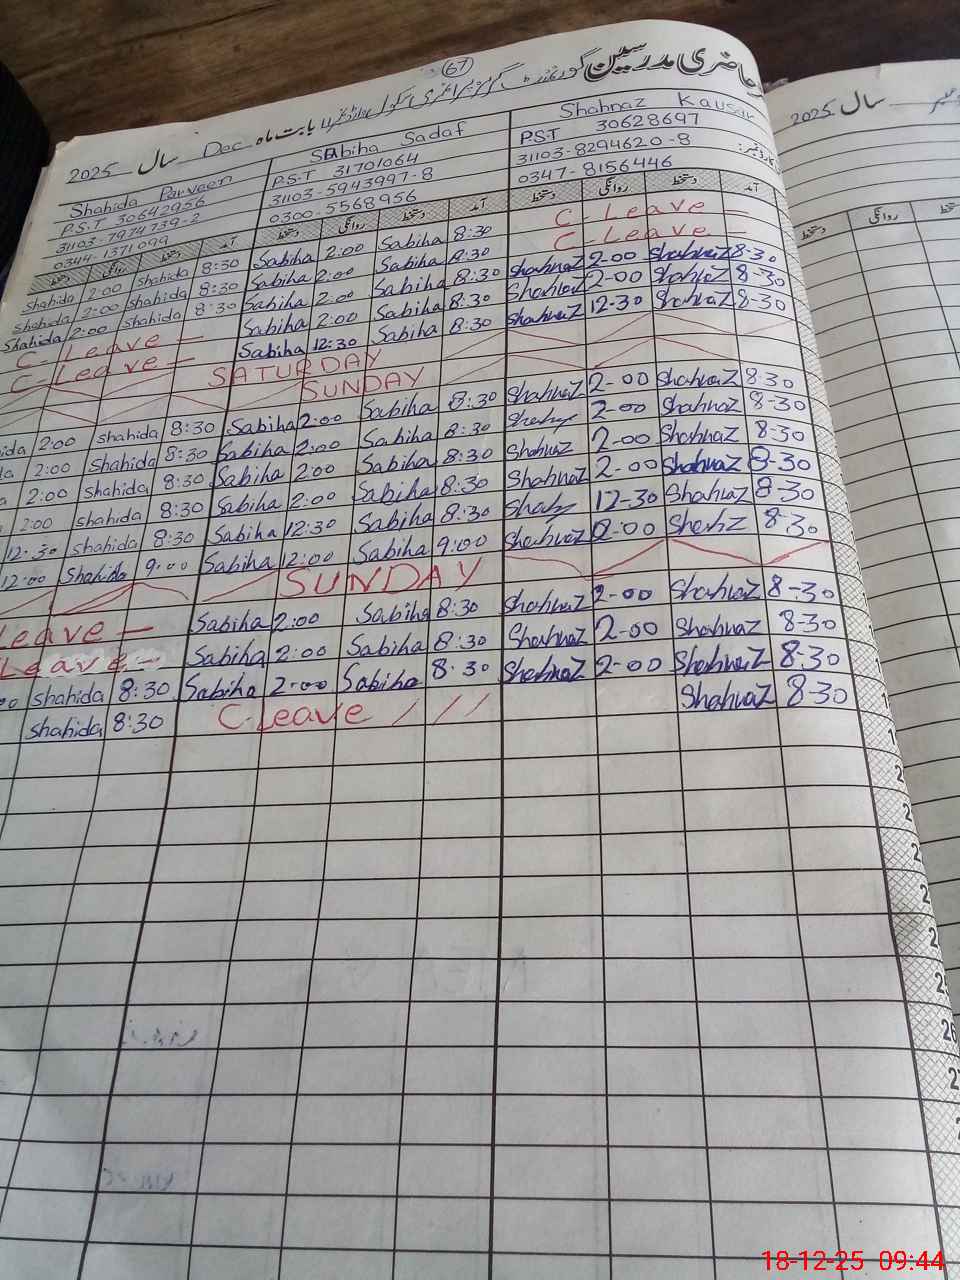 حاضری مدرسین گورنمنٹ گرلز پرائمری سکول
67
بابت ماہ Dec سال 2025
سال 2025
Shahida Parveen
P.S.T 30642956
31103-7974739-2
0344-1371099
SABiha Sadaf
P.S.T 31701064
31103-5943997-8
0300-5568956
Shahnaz Kausar
P.S.T 30628697
31103-8294620-8
0347-8156446
دستخط روانگی دستخط آمد دستخط روانگی دستخط آمد دستخط روانگی دستخط آمد
دستخط روانگی
Shahida 2:00 Shahida 8:30 Sabiha 2:00 Sabiha 8:30 C-Leave –
Shahida 2:00 Shahida 8:30 Sabiha 2:00 Sabiha 8:30 C-Leave –
Shahida 2:00 Shahida 8:30 Sabiha 2:00 Sabiha 8:30 Shahnaz 2-00 Shahnaz 8-30
C-Leave – Sabiha 2:00 Sabiha 8:30 Shahnaz 2-00 Shahnaz 8-30
C-Leave – Sabiha 12:30 Sabiha 8:30 Shahnaz 12-30 Shahnaz 8-30
SATURDAY
SUNDAY
ida 2:00 Shahida 8:30 Sabiha 2:00 Sabiha 8:30 Shahnaz 2-00 Shahnaz 8-30
a 2:00 Shahida 8:30 Sabiha 2:00 Sabiha 8:30 Shahz 2-00 Shahnaz 8-30
a 2:00 Shahida 8:30 Sabiha 2:00 Sabiha 8:30 Shahnaz 2-00 Shahnaz 8-30
2:00 Shahida 8:30 Sabiha 2:00 Sabiha 8:30 Shahnaz 2-00 Shahnaz 8-30
12:30 Shahida 8:30 Sabiha 12:30 Sabiha 8:30 Shahz 12-30 Shahnaz 8-30
12:00 Shahida 9:00 Sabiha 12:00 Sabiha 9:00 Shahnaz 2-00 Shahz 8-30
SUNDAY
Leave – Sabiha 2:00 Sabiha 8:30 Shahnaz 2-00 Shahnaz 8-30
Leave – Sabiha 2:00 Sabiha 8:30 Shahnaz 2-00 Shahnaz 8-30
00 Shahida 8:30 Sabiha 2:00 Sabiha 8:30 Shahnaz 2-00 Shahnaz 8-30
Shahida 8:30 C-Leave / / / Shahnaz 8-30
26
18-12-25 09:44